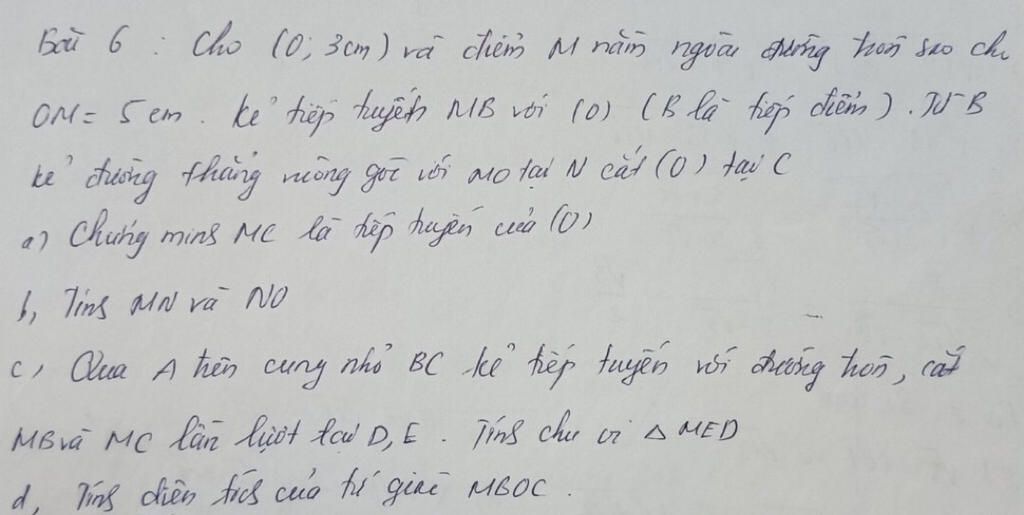 Bài 6 : Cho (O; 3cm) và điểm M nằm ngoài đường tròn sao cho
OM = 5 cm. kẻ tiếp tuyến MB với (O) (B là tiếp điểm). Từ B
kẻ đường thẳng vuông góc với MO tại N cắt (O) tại C
a) Chứng minh MC là tiếp tuyến của (O)
b, Tính MN và NO
c, Qua A trên cung nhỏ BC kẻ tiếp tuyến với đường tròn, cắt
MB và MC lần lượt tại D, E. Tính chu vi △ MED
d, Tính diện tích của tứ giác MBOC.